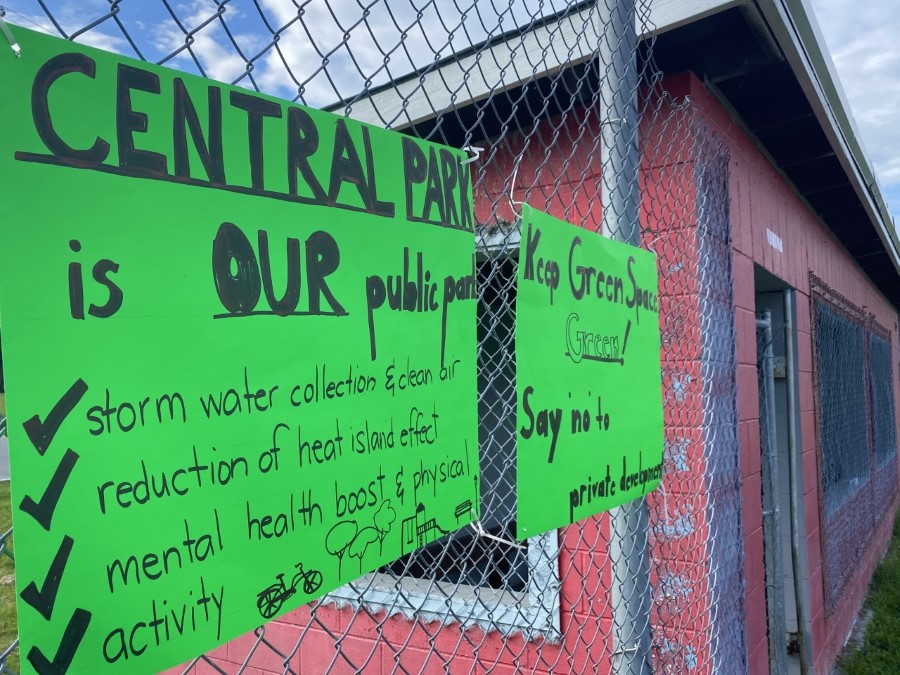 CENTRAL PARK
is OUR public park
storm water collection & clean air
reduction of heat island effect
mental health boost & physical
activity
Keep Green Space
Green!
Say no to
private development